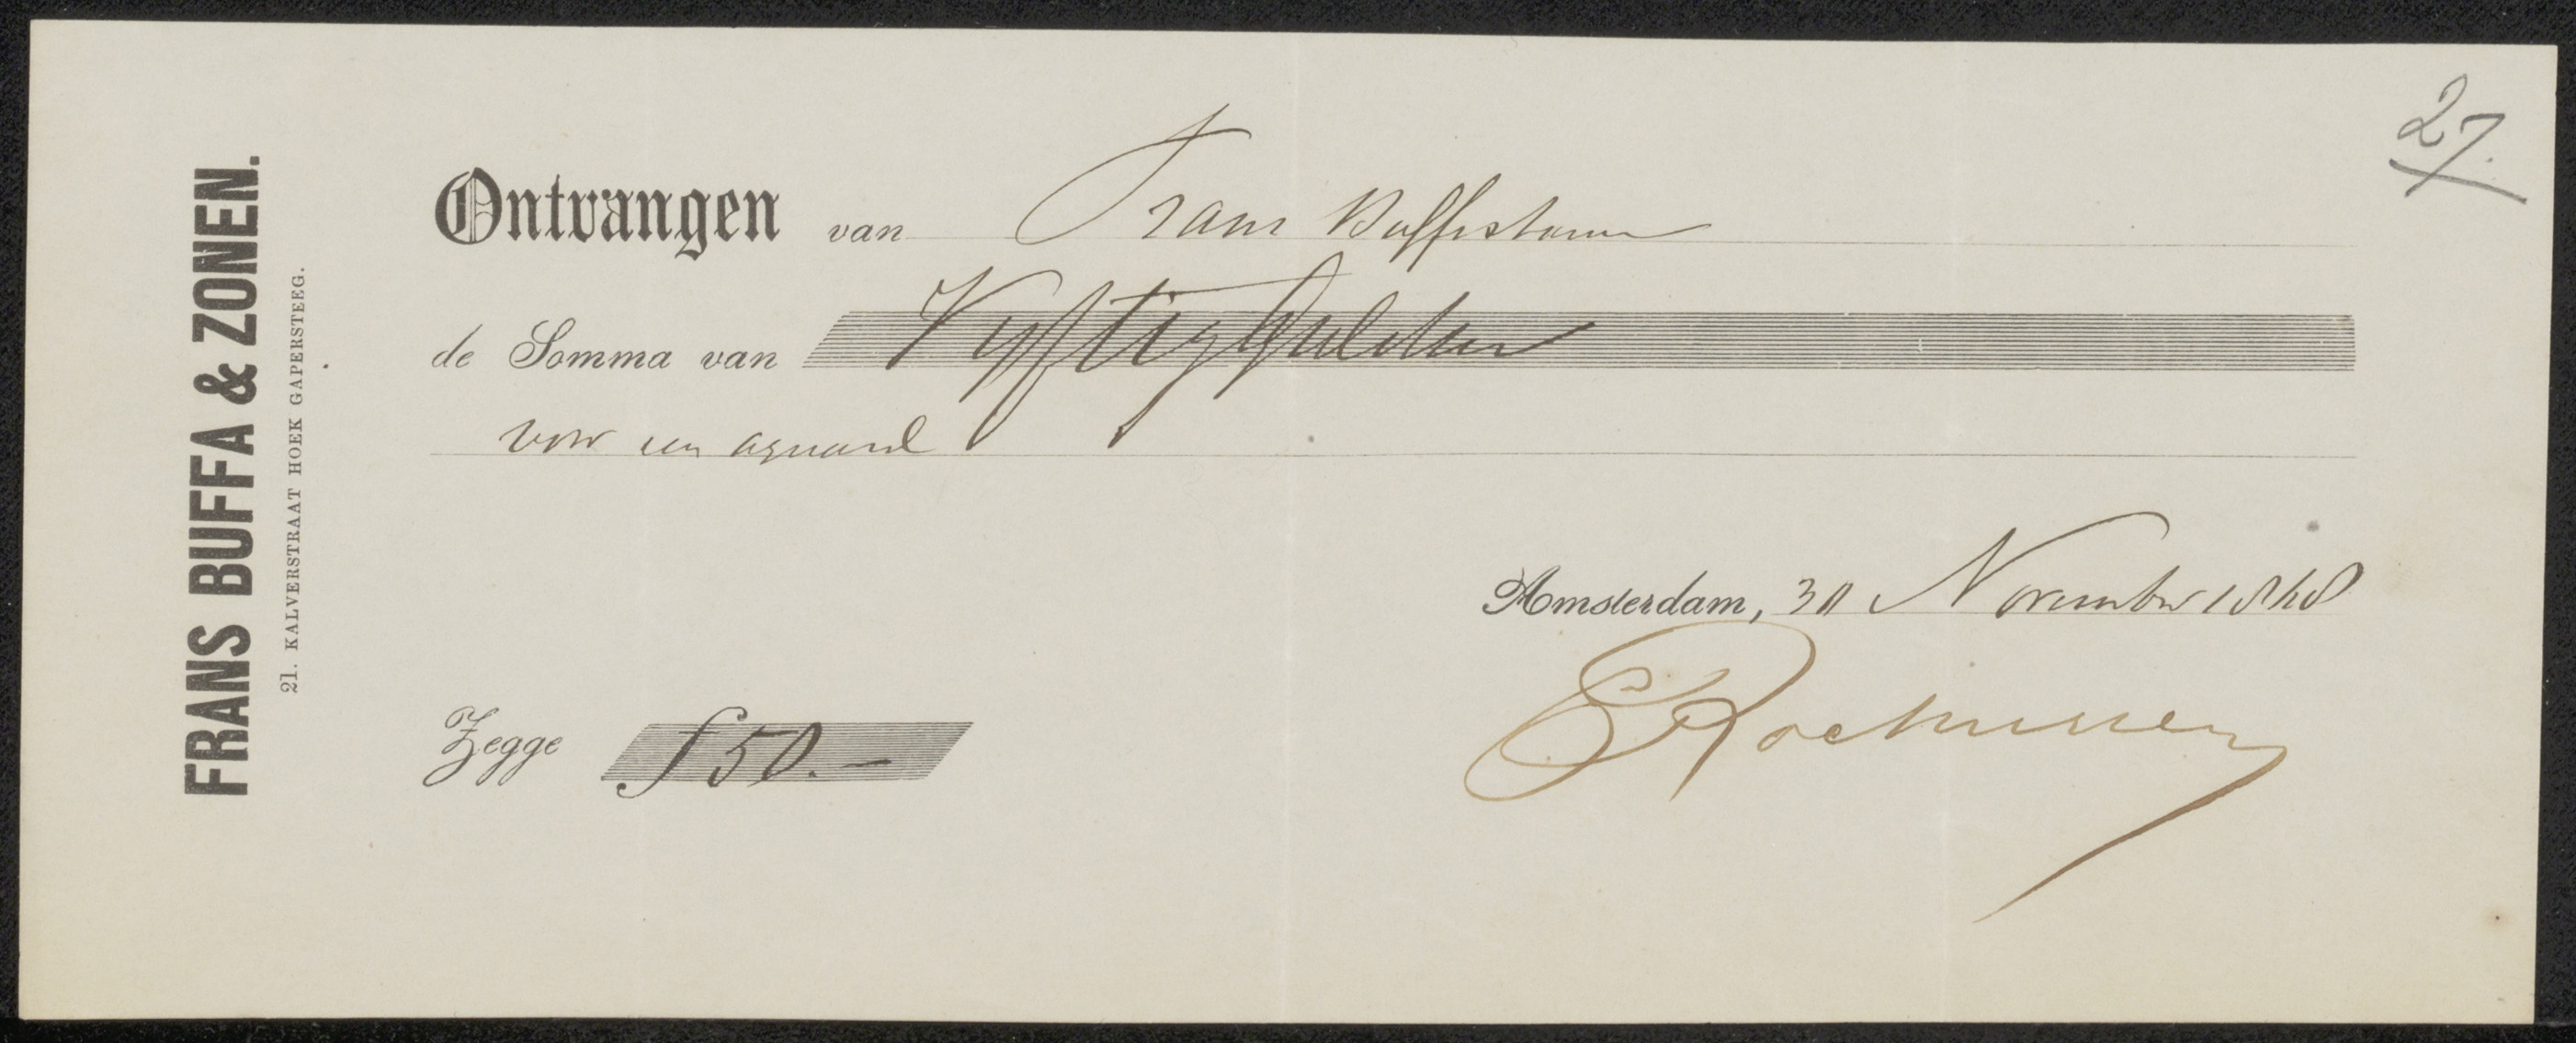 27.
FRANS BUFFA & ZONEN.
21. KALVERSTRAAT HOEK GAPERSTEEG.
Ontvangen van Frans Buffa
de Somma van Vyftig Gulden
voor een aquarel
Amsterdam, 30 November
Zegge f 50.-
C Rochussen